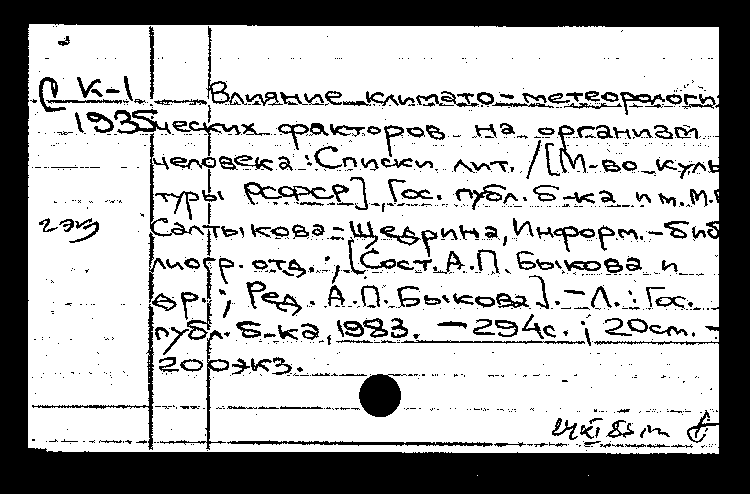 С К-1 Влияние климато-метеорологи-
1935 ческих факторов на организм
человека: Списки лит. / [М-во куль
туры РСФСР], Гос. публ. б-ка им. М.Е
2эк Салтыкова-Щедрина, Информ.-биб
лиогр. отд.; [Сост. А.П. Быкова и
др.; Ред. А.П. Быкова]. - Л.: Гос.
публ. б-ка, 1983. - 294с.; 20см. -
200экз.